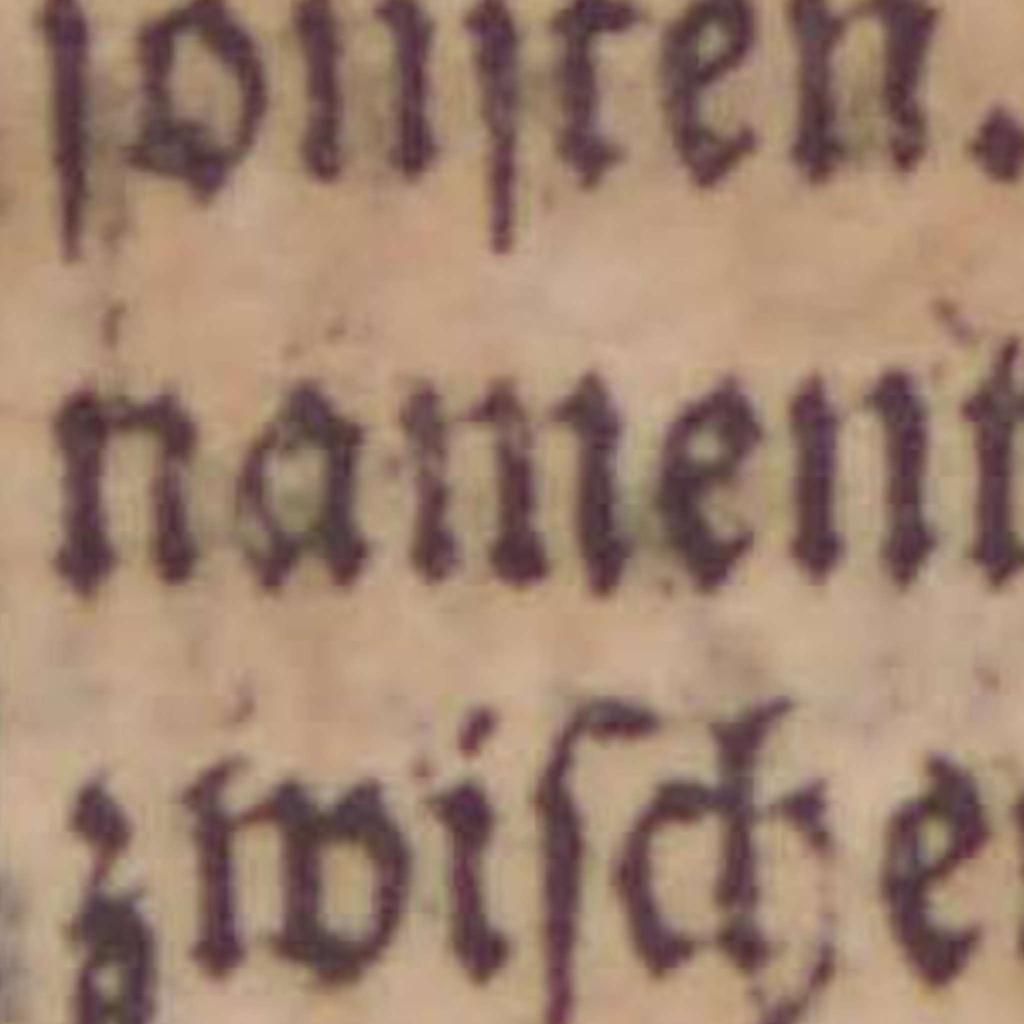 ſonſten.
nament
zwiſchen